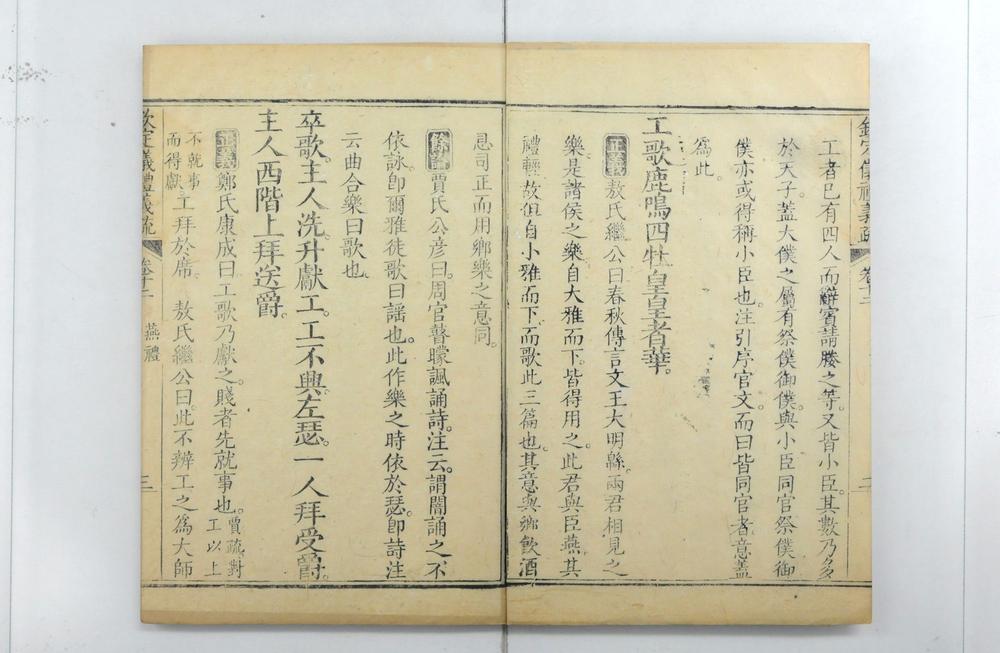 欽定儀禮義疏 卷十二 二
工者已有四人而辭賓請媵之等又皆小臣其數乃多
於天子蓋大僕之屬有祭僕御僕與小臣同官祭僕御
僕亦或得稱小臣也注引序官文而曰皆同官者意蓋
為此
工歌鹿鳴四牡皇皇者華
正義 敖氏繼公曰春秋傳言文王大明緜兩君相見之
樂是諸侯之樂自大雅而下皆得用之此君與臣燕其
禮輕故但自小雅而下而歌此三篇也其意與鄉飲酒
息司正而用鄉樂之意同
餘論 賈氏公彥曰周官瞽矇諷誦詩注云謂闇誦之不
依詠卽爾雅徒歌曰謠也此作樂之時依於瑟卽詩注
云曲合樂曰歌也
卒歌主人洗升獻工工不興左瑟一人拜受爵
主人西階上拜送爵
正義 鄭氏康成曰工歌乃獻之賤者先就事也 賈疏對工以上
不就事而得獻 工拜於席 敖氏繼公曰此不辨工之為大師
欽定儀禮義疏 卷十二 燕禮 三